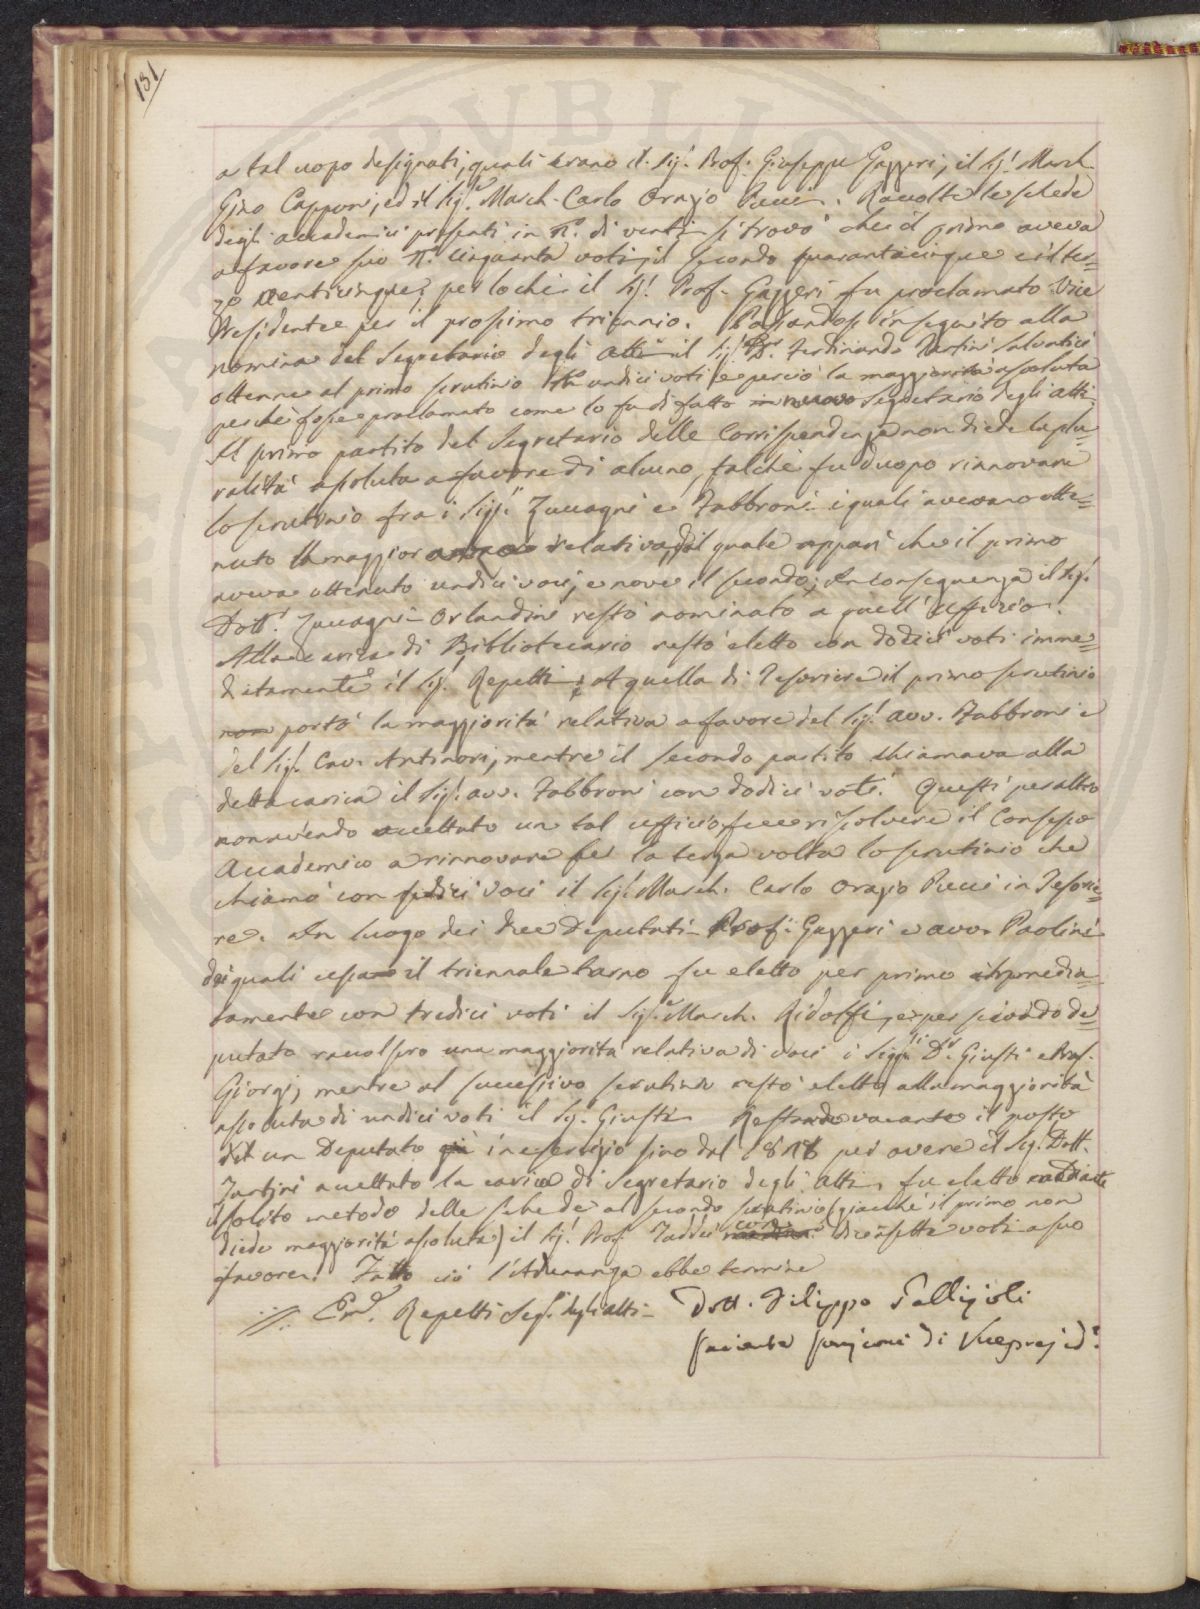 181
a tal uopo designati, quali erano il Sig.r Prof. Giuseppe Gazzeri, il Sig.r March.
Gino Capponi, ed il Sig.r March. Carlo Orazio Pucci. Raccolte le schede
degli accademici presenti in n.o di venti si trovò che il primo aveva
a favore suo n.o cinquanta voti, il secondo quarantacinque e il ter=
zo venticinque, per lo che il Sig.r Prof. Gazzeri fu proclamato Vice
Presidente per il prossimo triennio. Passandosi in seguito alla
nomina del Segretario degli Atti il Sig.r D.r Ferdinando Tartini Salvatici
ottenne al primo scrutinio undici voti e perciò la maggiorità assoluta
perchè fosse proclamato come lo fu di fatto in nuovo Segretario degli Atti.
Il primo partito del Segretario delle Corrispondenze non diede la plu=
ralità assoluta a favore di alcuno, talchè fu d'uopo rinnovare
lo scrutinio fra i Sigg.ri Zuccagni e Fabbroni i quali avevano otte=
nuto la maggior relativa, dal quale apparì che il primo
aveva ottenuto undici voci, e nove il secondo; In conseguenza il Sig.r
Dott.r Zuccagni-Orlandini restò nominato a quell'uffizio.
Alla carica di Bibliotecario restò eletto con dodici voti imme=
diatamente il Sig.r Repetti; A quella di Tesoriere il primo scrutinio
non portò la maggiorità relativa a favore del Sig.r avv. Fabbroni e
del Sig.r Cav. Antinori, mentre il secondo partito chiamava alla
detta carica il Sig.r avv. Fabbroni con dodici voti. Questi peraltro
non avendo accettato un tal ufficio, fece risolvere il Consesso
Accademico a rinnovare per la terza volta lo scrutinio che
chiamò con sedici voci il Sig.r March. Carlo Orazio Pucci in Tesorie=
re. In luogo dei due Deputati Prof. Gazzeri e avv. Paolini
dei quali cessava il triennale turno fu eletto per primo immedia=
tamente con tredici voti il Sig.r March. Ridolfi, e per secondo de=
putato raccolsero una maggiorità relativa di voci i Sigg.ri D.r Giusti e Prof.
Giorgi, mentre al successivo scrutinio restò eletto alla maggiorità
assoluta di undici voti il Sig. Giusti. Restando vacante il posto
di un Deputato già in esercizio sino dal 1818 per avere il Sig. Dott.
Tartini accettato la carica di Segretario degli Atti, fu eletto mediante
il solito metodo delle schede al secondo scrutinio (giacchè il primo non
diede maggiorità assoluta) il Sig.r Prof. Taddei con diciassette voti a suo
favore. Fatto ciò l'Adunanza ebbe termine
Em.e Repetti Seg.o degli Atti Dott. Filippo Gallizioli
facente funzioni di Vicepresid.e